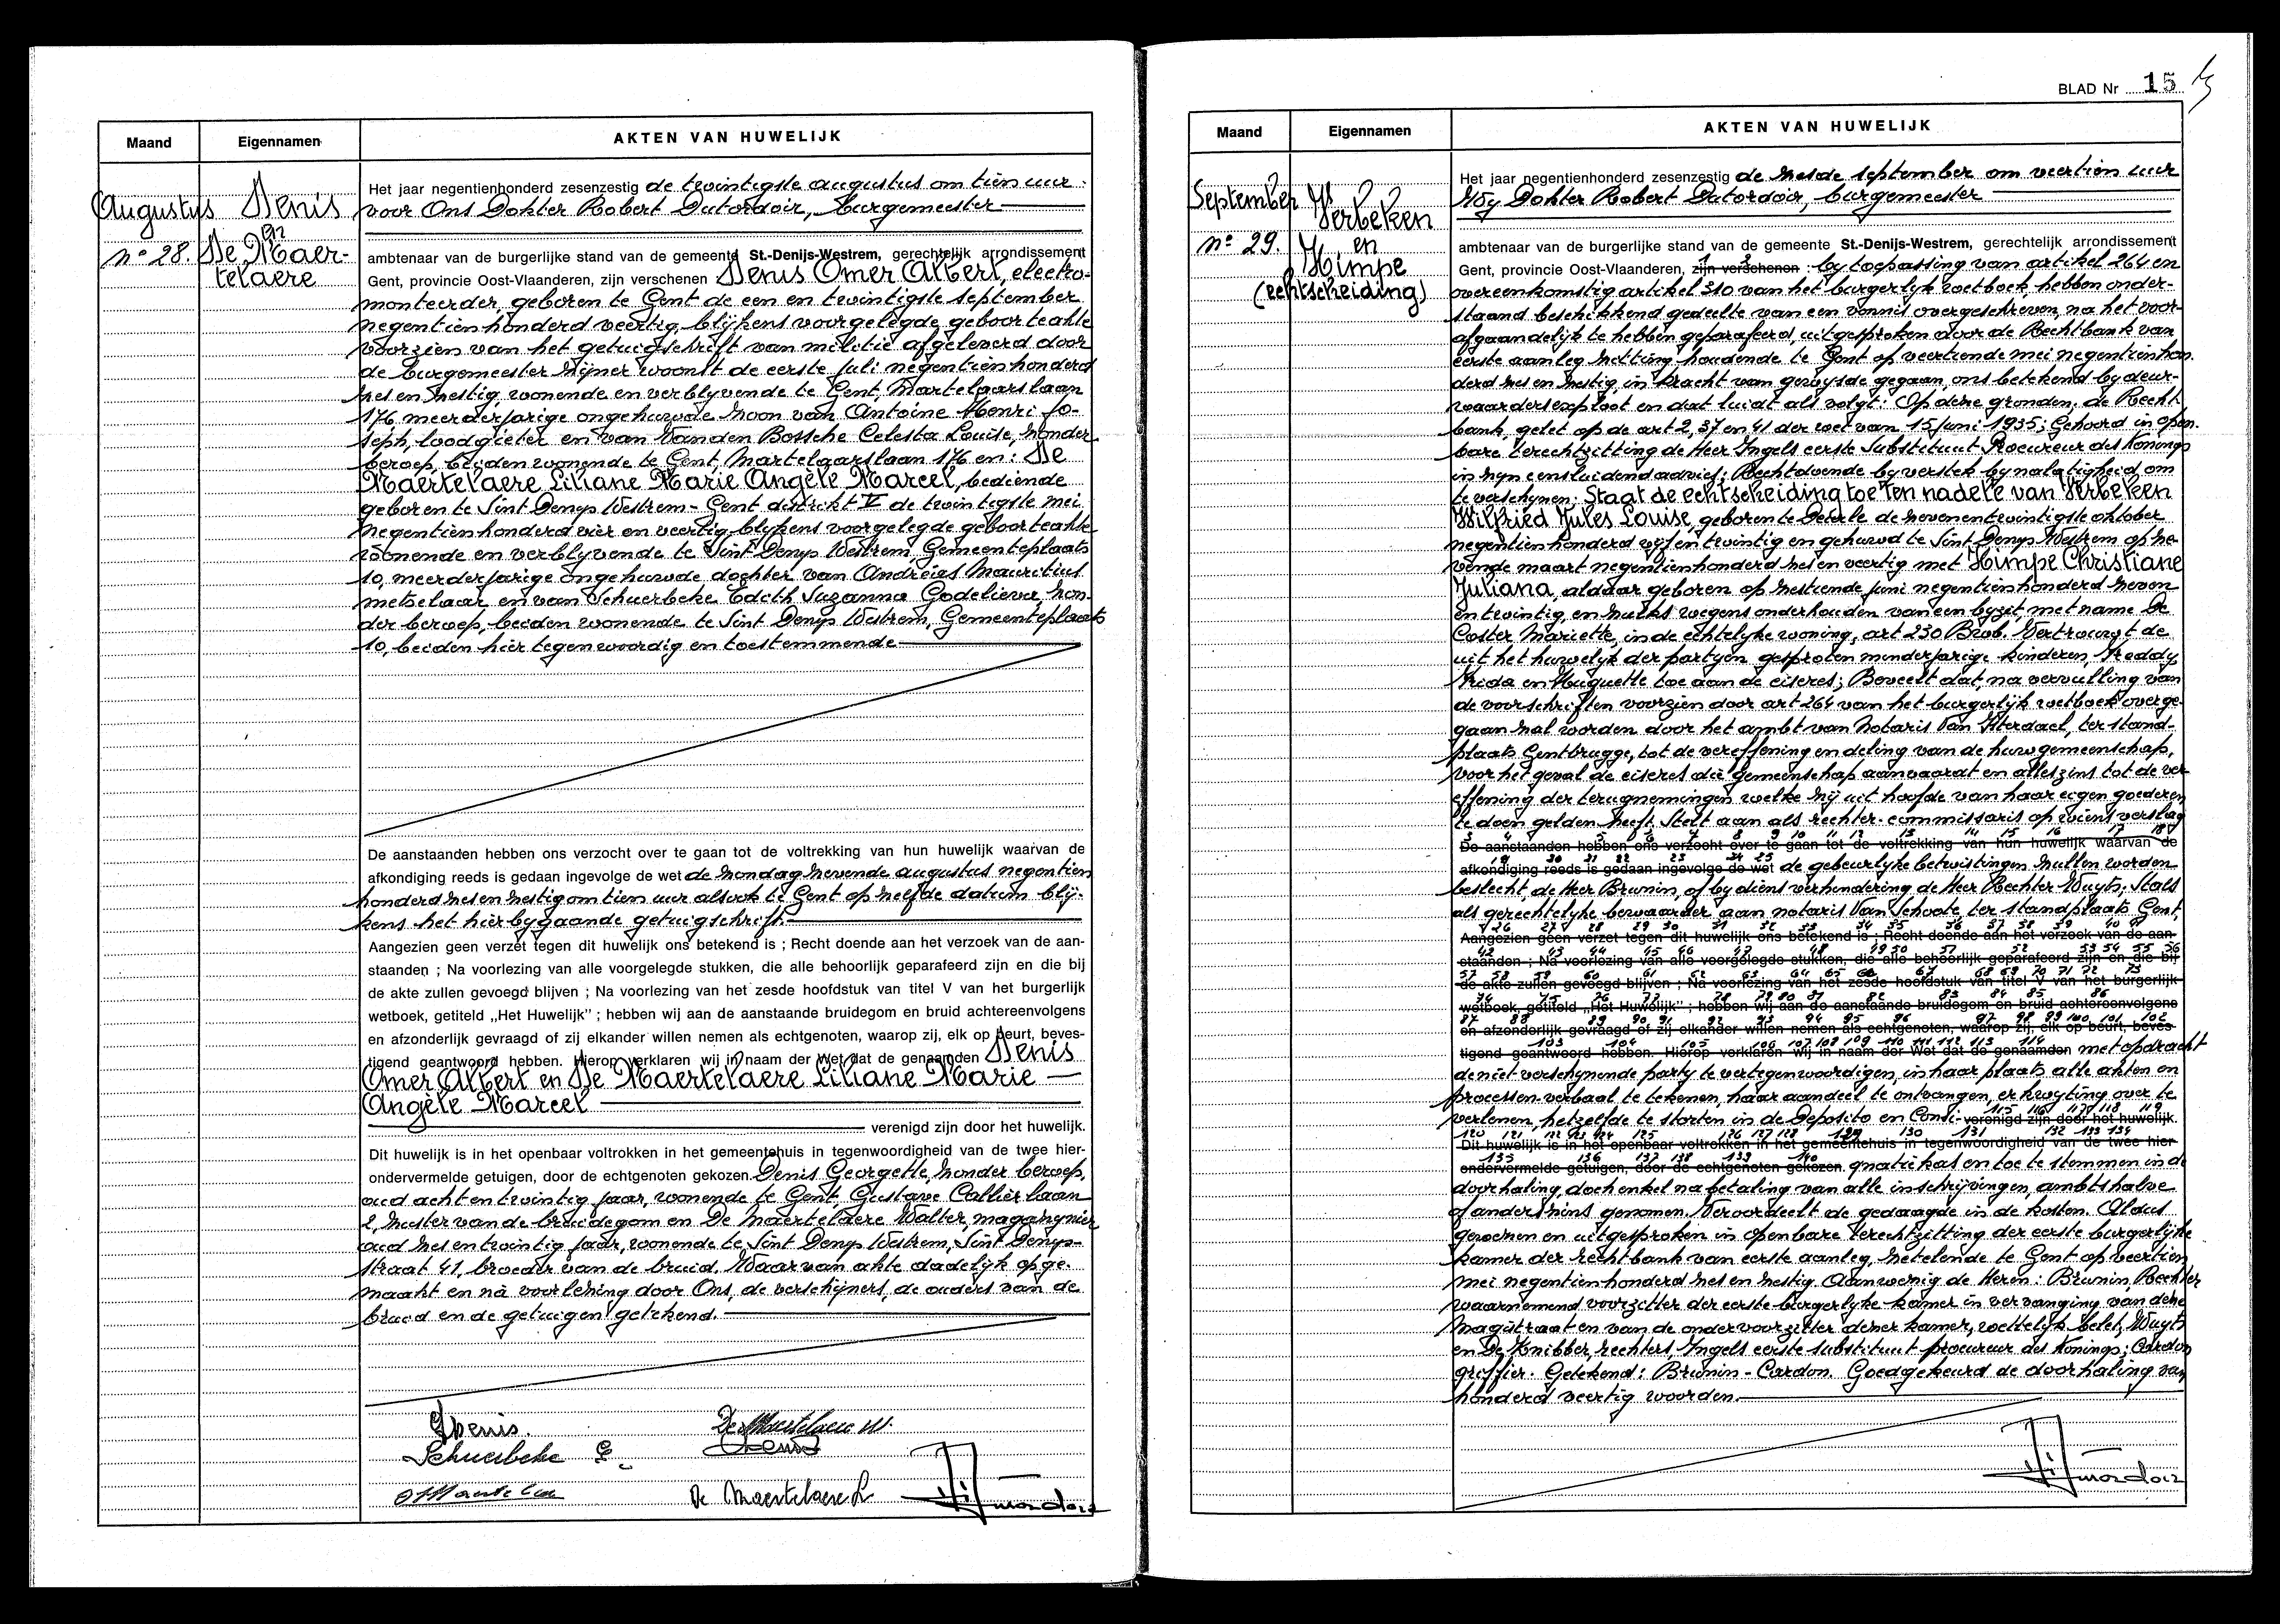 Maand
Eigennamen
AKTEN VAN HUWELIJK
Augustus
n° 28.
Denis
en
De Maer-
telaere
Het jaar negentienhonderd zesenzestig de twintigste augustus om tien uur
voor Ons Dokter Robert Dutordoir, burgemeester
ambtenaar van de burgerlijke stand van de gemeente St.-Denijs-Westrem, gerechtelijk arrondissement
Gent, provincie Oost-Vlaanderen, zijn verschenen Denis Omer Albert, electro-
monteerder, geboren te Gent de een en twintigste september
negentienhonderd veertig, blijkens voorgelegde geboorteakte
voorzien van het getuigschrift van militie afgeleverd door
de burgemeester zijner woonst de eerste juli negentienhonderd
zes en zestig, wonende en verblyvende te Gent, Martelaarslaan
176, meerderjarige ongehuwde zoon van Antoine Henri Jo-
seph, loodgieter en van Vanden Bossche Celesta Louise, zonder
beroep, beiden wonende te Gent, Martelaarslaan 176 en: De
Maertelaere Liliane Marie Angèle Marcel, bediende
geboren te Sint Denys Westrem-Gent distrikt V de twintigste mei
negentienhonderd vier en veertig, blykens voorgelegde geboorteakte
wonende en verblyvende te Sint Denys Westrem Gemeenteplaats
10, meerderjarige ongehuwde dochter van Andreies Mauritius
metselaar en van Schuerbeke Edith Suzanna Godelieva zon-
der beroep, beiden wonende te Sint Denys Westrem, Gemeenteplaats
10, beiden hier tegenwoordig en toestemmende
De aanstaanden hebben ons verzocht over te gaan tot de voltrekking van hun huwelijk waarvan de
afkondiging reeds is gedaan ingevolge de wet de zondag zevende augustus negentien
honderd zes en zestig om tien uur alsook te Gent op zelfde datum blij-
kens het hierbygaande getuigschrift.
Aangezien geen verzet tegen dit huwelijk ons betekend is ; Recht doende aan het verzoek van de aan-
staanden ; Na voorlezing van alle voorgelegde stukken, die alle behoorlijk geparafeerd zijn en die bij
de akte zullen gevoegd blijven ; Na voorlezing van het zesde hoofdstuk van titel V van het burgerlijk
wetboek, getiteld „Het Huwelijk" ; hebben wij aan de aanstaande bruidegom en bruid achtereenvolgens
en afzonderlijk gevraagd of zij elkander willen nemen als echtgenoten, waarop zij, elk op beurt, beves-
tigend geantwoord hebben. Hierop verklaren wij in naam der Wet dat de genaamden Denis
Omer Albert en De Maertelaere Liliane Marie
Angèle Marcel
verenigd zijn door het huwelijk.
Dit huwelijk is in het openbaar voltrokken in het gemeentehuis in tegenwoordigheid van de twee hier-
ondervermelde getuigen, door de echtgenoten gekozen. Denis Georgette, zonder beroep,
oud acht en twintig jaar, wonende te Gent, Gustave Callier laan
2, zuster van de bruidegom en De Maertelaere Walter, magazynier
oud zes en twintig jaar, wonende te Sint Denys Westrem, Sint Denys-
straat 41, broeder van de bruid. Waarvan akte dadelijk opge-
maakt en nà voorlezing door Ons, de verschijners, de ouders van de
bruid en de getuigen getekend.
Denis.
De Maertelaere W.
Schuerbeke E.
Denis
De Maertelaere L
BLAD Nr 15
Maand
Eigennamen
AKTEN VAN HUWELIJK
September
n° 29.
Verbeken
en
Himpe
(echtscheiding)
Het jaar negentienhonderd zesenzestig de zesde september om veertien uur
Wy Dokter Robert Dutordoir, burgemeester
ambtenaar van de burgerlijke stand van de gemeente St.-Denijs-Westrem, gerechtelijk arrondissement
1 2
Gent, provincie Oost-Vlaanderen, zijn verschenen : by toepassing van artikel 264 en
overeenkomstig artikel 310 van het burgerlyk wetboek, hebben onder-
staand beschikkend gedeelte van een vonnis overgeschreven, na het voor-
afgaandelijk te hebben geparafeerd, uitgesproken door de Rechtbank van
eerste aanleg zitting houdende te Gent op veertiende mei negentienhon-
derd zes en zestig, in kracht van gewysde gegaan, ons betekend by deur-
waardersexploot en dat luidt als volgt: Op deze gronden, de Recht-
bank, gelet op de art 2, 37 en 41 der wet van 15 juni 1935; Gehoord in open-
bare terechtzitting de Heer Ingels eerste Substituut-Procureur des Konings
in zyn eensluidend advies; Rechtdoende by verstek by nalatigheid om
te verschynen: Staat de echtscheiding toe ten nadele van Verbeken
Wilfried Jules Louise, geboren te Deurle de negenentwintigste oktober
negentienhonderd vijfentwintig en gehuwd te Sint Denys Westrem op ze-
vende maart negentienhonderd zes en veertig met Himpe Christiane
Juliana, aldaar geboren op zestiende juni negentienhonderd zeven
en twintig, en zulks wegens onderhouden van een byzit, met name De
Coster Mariette, in de echtelyke woning, art 230 B.W.b. Vertrouwt de
uit het huwelyk der partyen gesproten minderjarige kinderen, Freddy
Frida en Huguette toe aan de eiseres; Beveelt dat, na vervulling van
de voorschriften voorzien door art 264 van het burgerlyk wetboek overge-
gaan zal worden door het ambt van Notaris Van Hterdael, ter stand-
plaats Gentbrugge, tot de vereffening en deling van de huwgemeenschap,
voor het geval de eiseres die gemeenschap aanvaardt en alleszins tot de ver-
effening der terugnemingen welke zij uit hoofde van haar eigen goederen
te doen gelden heeft. Stelt aan als rechter-commissaris op wiens verslag
3 4 5 6 7 8 9 10 11 12 13 14 15 16 17 18
De aanstaanden hebben ons verzocht over te gaan tot de voltrekking van hun huwelijk waarvan de
19 20 21 22 23 24 25
afkondiging reeds is gedaan ingevolge de wet de gebeurlyke betwistingen zullen worden
beslecht, de Heer Brunin, of by diens verhindering de Heer Rechter Wuyts. Stals
als gerechtelyke bewaarder aan notaris Van Schoote ter standplaats Gent,
26 27 28 29 30 31 32 33 34 35 36 37 38 39 40 41
Aangezien geen verzet tegen dit huwelijk ons betekend is ; Recht doende aan het verzoek van de aan-
42 43 44 45 46 47 48 49 50 51 52 53 54 55 56
staanden ; Na voorlezing van alle voorgelegde stukken, die alle behoorlijk geparafeerd zijn en die bij
57 58 59 60 61 62 63 64 65 66 67 68 69 70 71 72 73
de akte zullen gevoegd blijven ; Na voorlezing van het zesde hoofdstuk van titel V van het burgerlijk
74 75 76 77 78 79 80 81 82 83 84 85 86
wetboek, getiteld „Het Huwelijk" ; hebben wij aan de aanstaande bruidegom en bruid achtereenvolgens
87 88 89 90 91 92 93 94 95 96 97 98 99 100 101 102
en afzonderlijk gevraagd of zij elkander willen nemen als echtgenoten, waarop zij, elk op beurt, beves-
103 104 105 106 107 108 109 110 111 112 113 114
tigend geantwoord hebben. Hierop verklaren wij in naam der Wet dat de genaamden met opdracht
de niet-verschynende party te vertegenwoordigen, in haar plaats alle akten en
processen-verbaal te tekenen, haar aandeel te ontvangen, er kwyting over te
verlenen, hetzelfde te storten in de Deposito en Consi- verenigd zijn door het huwelijk.
115 116 117 118 119
120 121 122 123 124 125 126 127 128 129 130 131 132 133 134
Dit huwelijk is in het openbaar voltrokken in het gemeentehuis in tegenwoordigheid van de twee hier-
135 136 137 138 139 140
ondervermelde getuigen, door de echtgenoten gekozen. gnatiekas en toe te stemmen in de
doorhaling, doch enkel na betaling van alle inschrijvingen, ambtshalve
of anderszins genomen. Veroordeelt de gedaagde in de kosten. Aldus
gewezen en uitgesproken in openbare terechtzitting der eerste burgerlijke
kamer der rechtbank van eerste aanleg, zetelende te Gent op veertien
mei negentienhonderd zes en zestig. Aanwezig de Heren: Brunin, Rechter
waarnemend voorzitter der eerste burgerlyke kamer in vervanging van deze
magistraat en van de ondervoorzitter dezer kamer, wettelyk belet, Wuyts
en De Knibber, rechters, Ingels eerste substituut procureur des Konings; Cardon
griffier. Getekend: Brunin - Cardon. Goedgekeurd de doorhaling van
honderd veertig woorden.